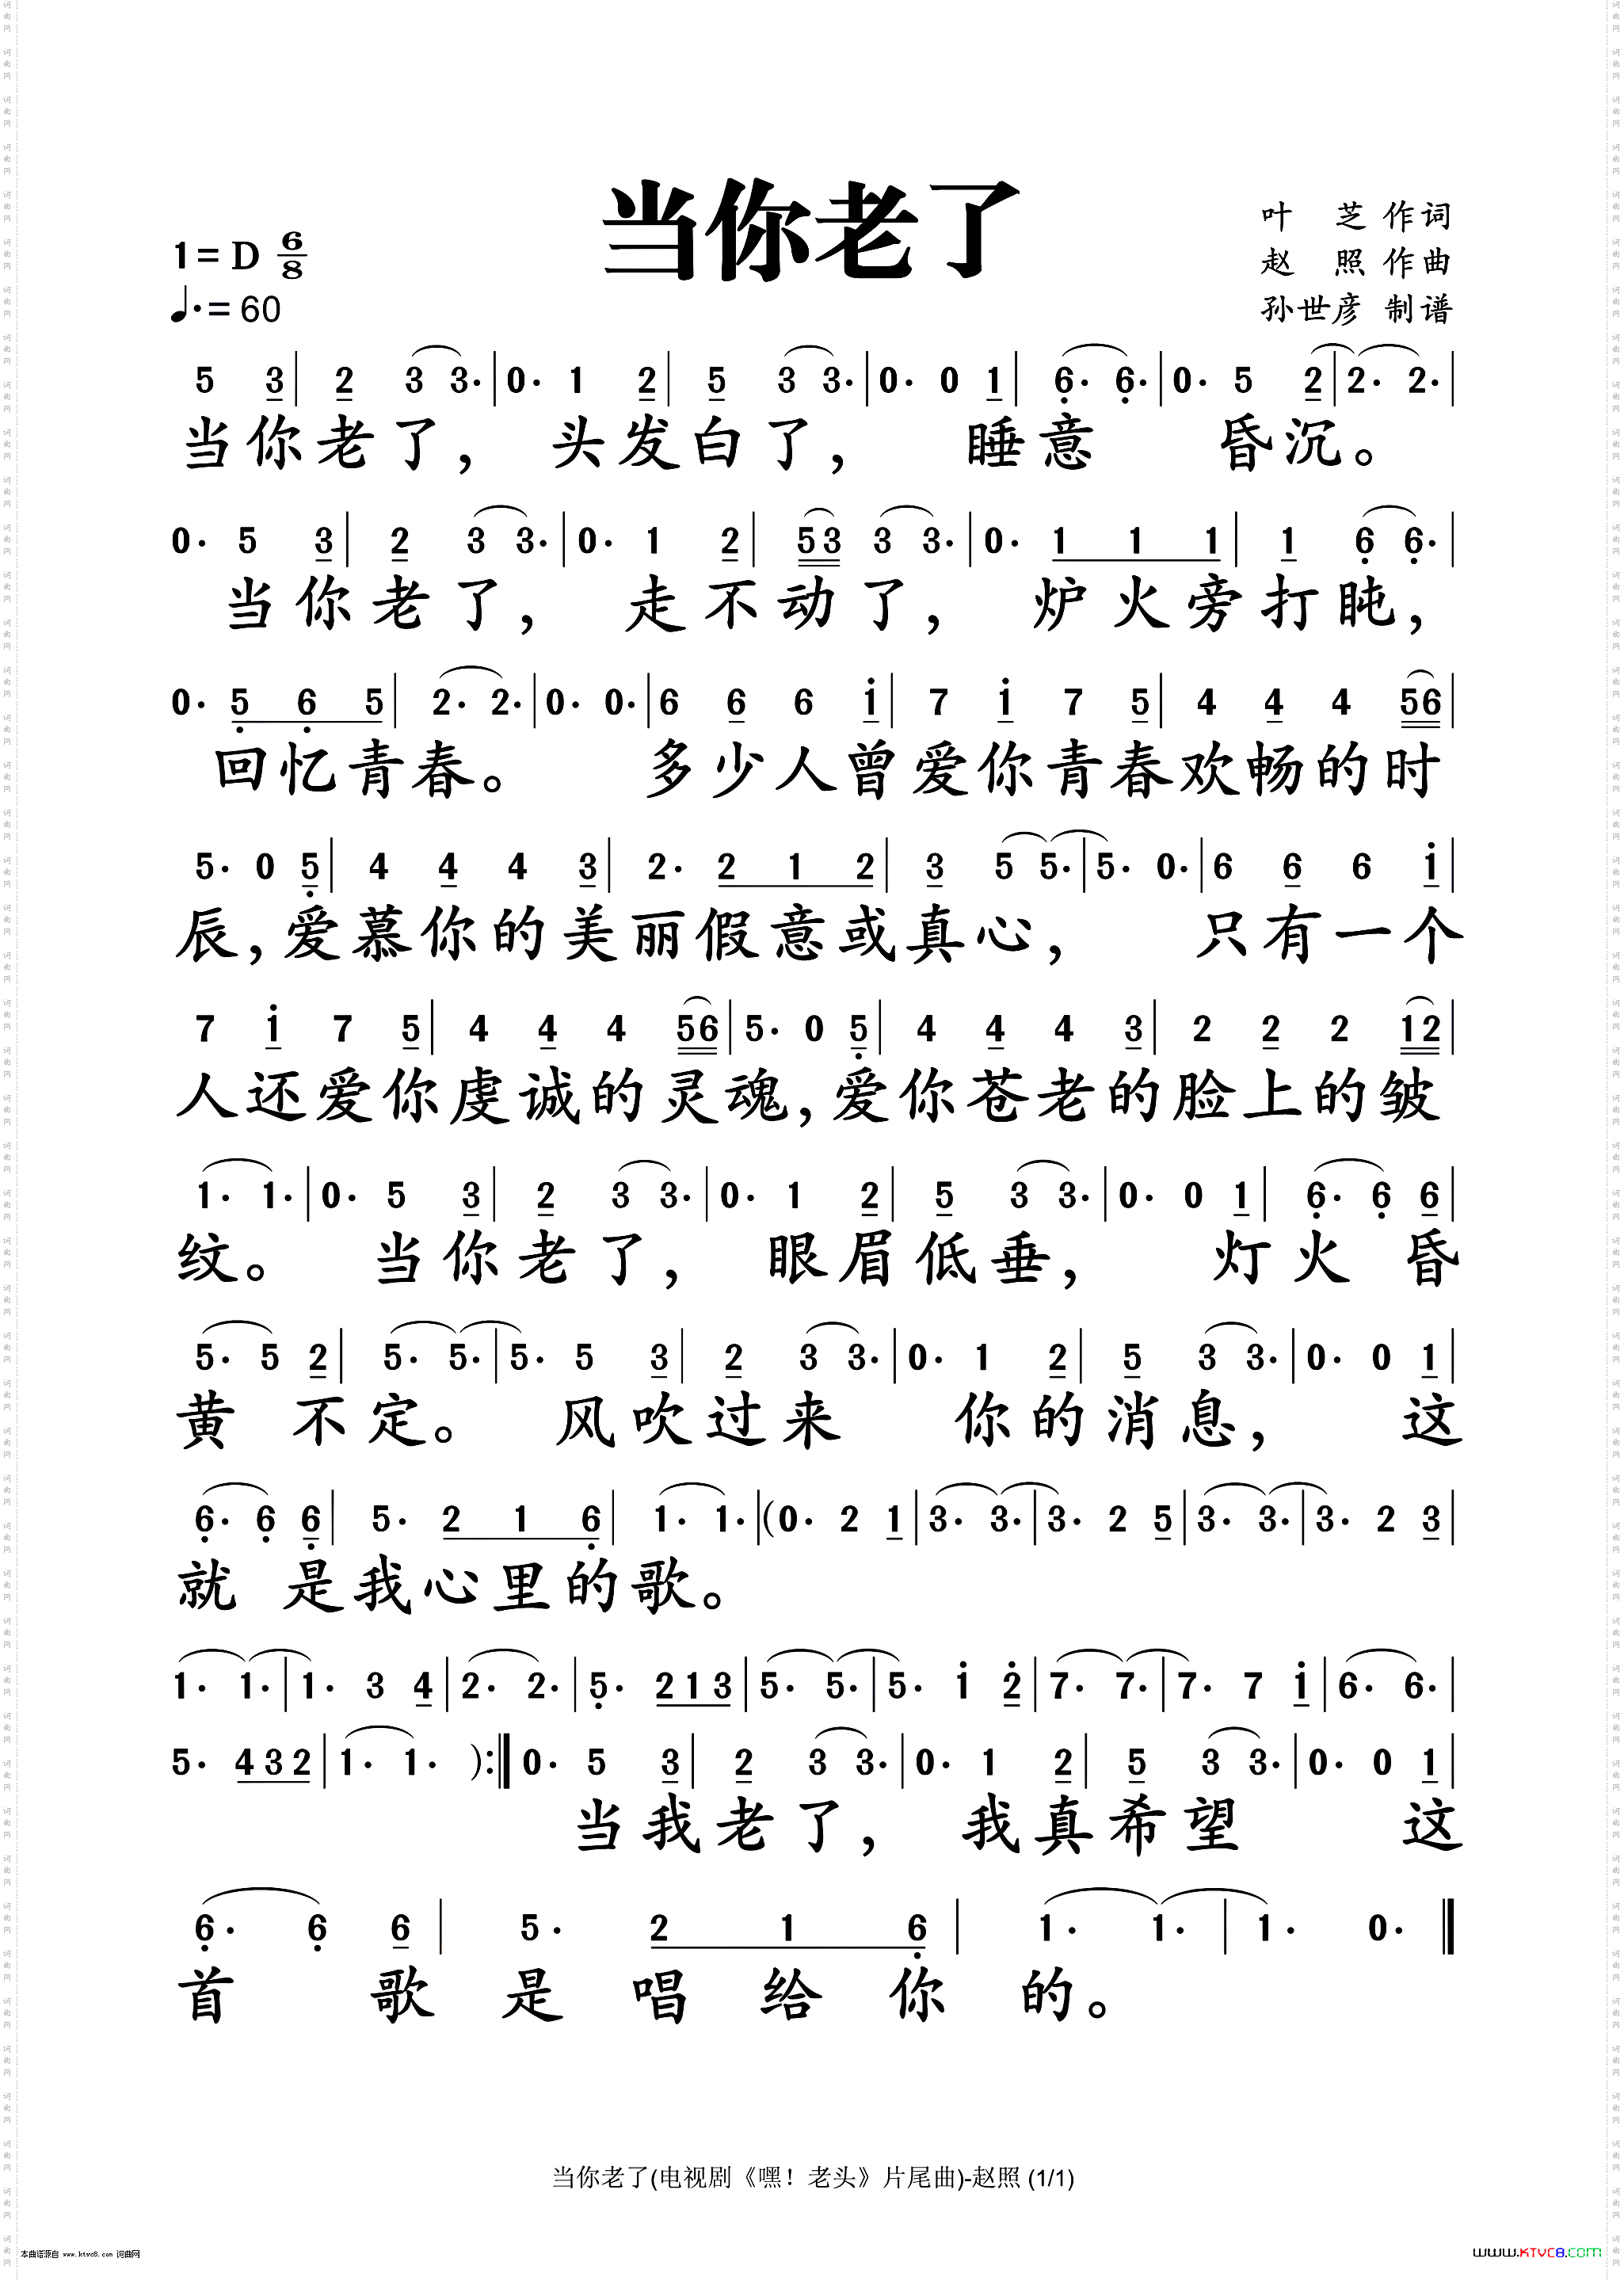 当你老了
1=D 6/8
♩.=60
叶 芝 作词
赵 照 作曲
孙世彦 制谱
5 3 | 2 3 3· | 0· 1 2 | 5 3 3· | 0· 0 1 | 6̣· 6̣· | 0· 5 2 | 2· 2· |
当你老了, 头发白了, 睡意 昏沉。
0· 5 3 | 2 3 3· | 0· 1 2 | 53 3 3· | 0· 1 1 1 | 1 6̣ 6̣· |
当你老了, 走不动了, 炉火旁打盹,
0· 5̣ 6̣ 5 | 2· 2· | 0· 0· | 6 6 6 i | 7 i 7 5 | 4 4 4 56 |
回忆青春。 多少人曾爱你青春欢畅的时
5· 0 5̣ | 4 4 4 3 | 2· 2 1 2 | 3 5 5· | 5· 0· | 6 6 6 i |
辰,爱慕你的美丽假意或真心, 只有一个
7 i 7 5 | 4 4 4 56 | 5· 0 5̣ | 4 4 4 3 | 2 2 2 12 |
人还爱你虔诚的灵魂,爱你苍老的脸上的皱
1· 1· | 0· 5 3 | 2 3 3· | 0· 1 2 | 5 3 3· | 0· 0 1 | 6̣· 6̣ 6 |
纹。 当你老了, 眼眉低垂, 灯火 昏
5· 5 2 | 5· 5· | 5· 5 3 | 2 3 3· | 0· 1 2 | 5 3 3· | 0· 0 1 |
黄 不定。 风吹过来 你的消息, 这
6̣· 6̣ 6̣ | 5· 2 1 6̣ | 1· 1· | (0· 2 1 | 3· 3· | 3· 2 5 | 3· 3· | 3· 2 3 |
就 是我心里的歌。
1· 1· | 1· 3 4 | 2· 2· | 5̣· 2 1 3 | 5· 5· | 5· i 2̇ | 7· 7· | 7· 7 i | 6· 6· |
5· 4 3 2 | 1· 1· ) :‖ 0· 5 3 | 2 3 3· | 0· 1 2 | 5 3 3· | 0· 0 1 |
当我老了, 我真希望 这
6̣· 6̣ 6 | 5· 2 1 6̣ | 1· 1· | 1· 0· ‖
首 歌是唱给你的。
当你老了(电视剧《嘿！老头》片尾曲)-赵照 (1/1)
本曲谱源自 www.ktvc8.com 词曲网
www.KTVC8.com